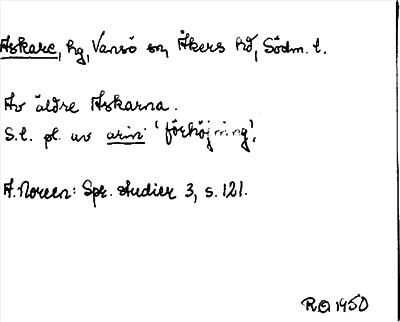 Askare, hg, Vansö sn, Åkers hd, Södm. l.
Av äldre Askarna.
S.l. pl. av arin 'förhöjning'.
A. Noreen: Spr. studier 3, s. 121.
R 1950